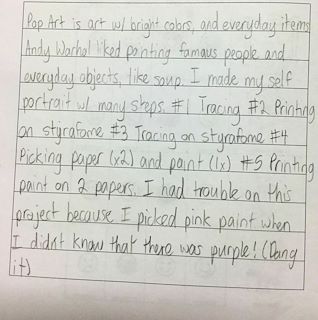 Pop Art is art w/ bright colors, and everyday items
Andy Warhol liked panting famous people and
everyday objects, like soup. I made my self
portrait w/ many steps. #1 Tracing #2 Printing
on styrafome #3 Tracing on styrafome #4
Picking paper (x2) and paint (1x) #5 Printing
paint on 2 papers. I had trouble on this
project because I picked pink paint when
I didnt know that there was purple! (Dang
it)